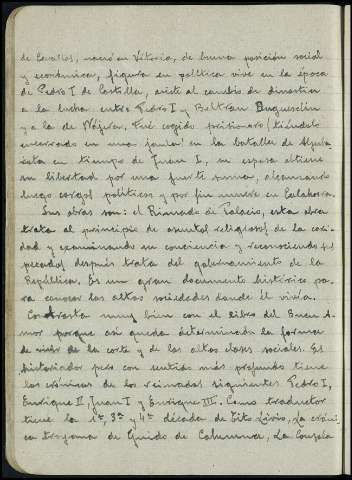 de Cevallos, nació en Vitoria, de buena posición social
y económica, figura en política vive en la época
de Pedro I de Castilla, asiste al cambio de dinastia
a la lucha entre Pedro I y Beltrán Duguesclin
y a la de Nájera. Fué cogido prisionero (tiendolo
encerrado en una jaula) en la batalla de Aljuba
rota en tiempo de Juan I, su esposa obtiene
su libertad por una fuerte suma, alcanzando
luego cargos políticos y por fin muere en Calahorra.
Sus obras son: el Rimado de Palacio, esta obra
trata al principio de asuntos religiosos de la cari-
dad y examinando su conciencia y reconociendo sus
pecados después trata del gobernamiento de la
República. Es un gran documento histórico pa-
ra conocer las altas sociedades donde él vivía.
Contrasta muy bien con el libro del Buen A-
mor porque asi queda determinada la forma
de vivir de la corte y de las altas clases sociales. Es
historiador pero con sentido más profundo tiene
las crónicas de los reinados siguientes Pedro I,
Enrique II, Juan I y Enrique III. Como traductor
tiene la 1ª, 3ª y 4ª década de Tito Livio, La cróni-
ca troyana de Guido de Columna, La Consola